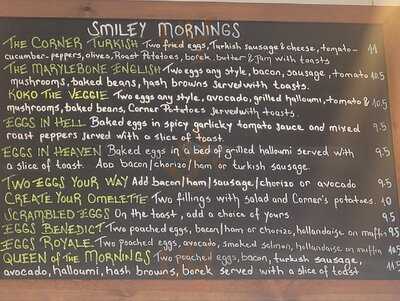 SMILEY MORNINGS
THE CORNER TURKISH Two fried eggs, Turkish sausage & cheese, tomato- 11
cucumber-peppers, olives, Roast Potatoes, borek, butter & Jam with toasts
THE MARYLEBONE ENGLISH Two eggs any style, bacon, sausage, tomato 10.5
mushrooms, baked beans, hash browns served with toasts.
KOKO THE VEGGIE Two eggs any style, avocado, grilled halloumi, tomato & 10.5
mushrooms, baked beans, Corner Potatoes served with toasts.
EGGS IN HELL Baked eggs in spicy garlicky tomato sauce and mixed 9.5
roast peppers served with a slice of toast
EGGS IN HEAVEN Baked eggs in a bed of grilled halloumi served with 9.5
a slice of toast. Add bacon/chorizo/ham or turkish sausage.
TWO EGGS YOUR WAY Add bacon/ham/sausage/chorizo or avocado 9.5
CREATE YOUR OMELETTE Two fillings with salad and Corner's potatoes. 10
SCRAMBLED EGGS On the toast, add a choice of yours. 9.5
EGGS BENEDICT Two poached eggs, bacon/ham or chorizo, hollandaise on muffin 9.5
EGGS ROYALE Two poached eggs, avocado, smoked salmon, hollandaise on muffin 10.5
QUEEN of THE MORNINGS Two poached eggs, bacon, turkish sausage, 11.5
avocado, halloumi, hash browns, borek served with a slice of toast